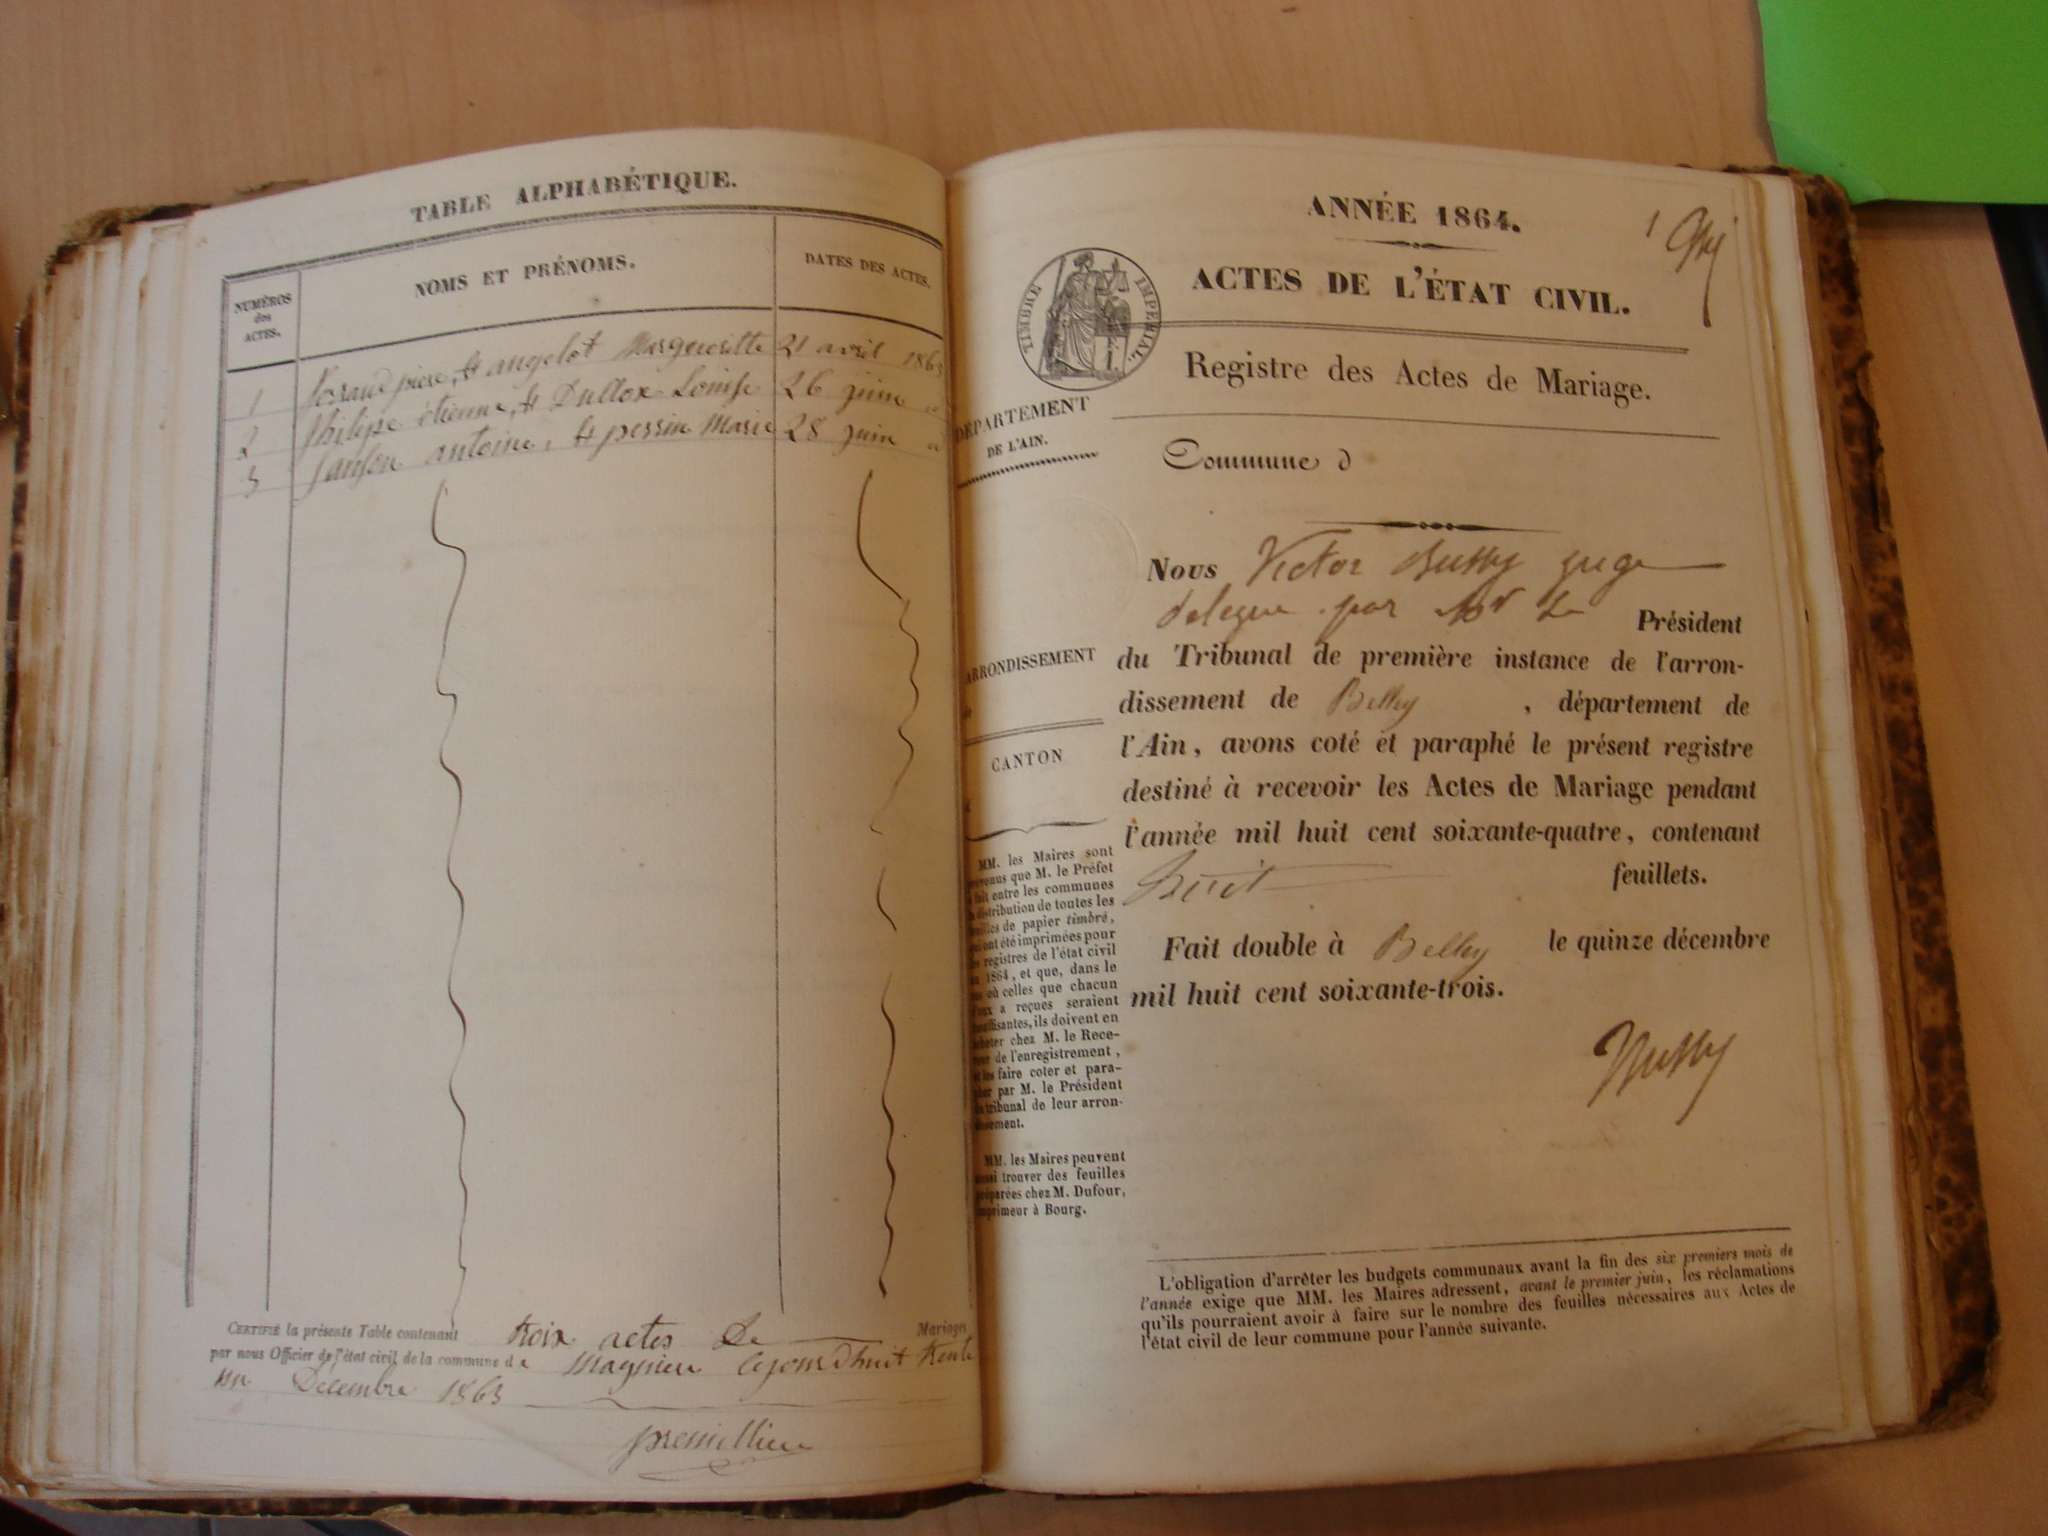 TABLE ALPHABÉTIQUE.
NUMÉROS
des
ACTES.
NOMS ET PRÉNOMS.
DATES DES ACTES.
1 pierre, et angelot Margueritte 21 avril 1863
2 philipe étienne, et Dullox Louise 26 juin id
3 antoine, et perrin Marie 28 juin id
CERTIFIÉ la présente Table contenant troix actes De Mariages
par nous Officier de l'état civil de la commune de Magnieu Cejourdhuit trente
un Décembre 1863
premillieu
ANNÉE 1864.
1
ACTES DE L'ÉTAT CIVIL.
TIMBRE IMPÉRIAL.
Registre des Actes de Mariage.
DÉPARTEMENT
DE L'AIN.
Commune d
Nous Victor Bussy juge
délégué par Mr Le Président
du Tribunal de première instance de l'arron-
dissement de Belley , département de
l'Ain, avons coté et paraphé le présent registre
destiné à recevoir les Actes de Mariage pendant
l'année mil huit cent soixante-quatre, contenant
huit feuillets.
Fait double à Belley le quinze décembre
mil huit cent soixante-trois.
Bussy
ARRONDISSEMENT
CANTON
MM. les Maires sont
prévenus que M. le Préfet
a fait entre les communes
la distribution de toutes les
feuilles de papier timbré,
qui ont été imprimées pour
les registres de l'état civil
en 1864, et que, dans le
cas où celles que chacun
d'eux a reçues seraient
insuffisantes, ils doivent en
acheter chez M. le Rece-
veur de l'enregistrement,
et les faire coter et para-
pher par M. le Président
du tribunal de leur arron-
dissement.
MM. les Maires peuvent
aussi trouver des feuilles
préparées chez M. Dufour,
imprimeur à Bourg.
L'obligation d'arrêter les budgets communaux avant la fin des six premiers mois de
l'année exige que MM. les Maires adressent, avant le premier juin, les réclamations
qu'ils pourraient avoir à faire sur le nombre des feuilles nécessaires aux Actes de
l'état civil de leur commune pour l'année suivante.